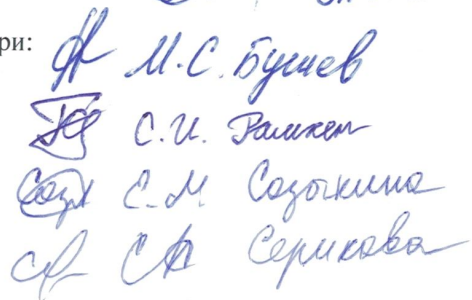 ри:
М.С. Бушев
С.И. Рамкен
С.М Созыкина
Серикова